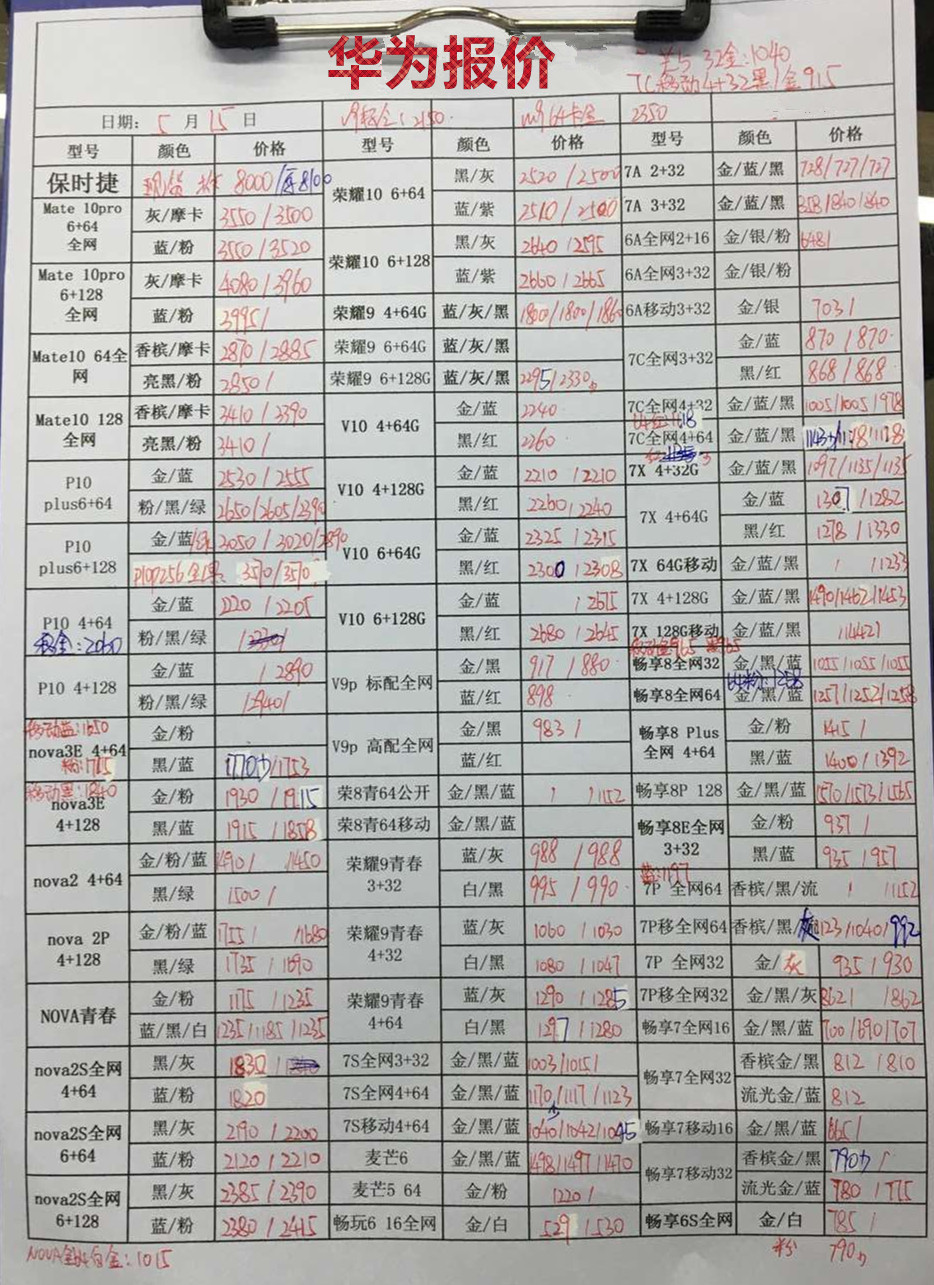 华为报价
32金:1040
7C移动4+32黑/金915
日期: 5 月 15 日
2350
型号 颜色 价格 型号 颜色 价格 型号 颜色 价格
保时捷 现货 8000/ 8100 荣耀10 6+64 黑/灰 2520/2500 7A 2+32 金/蓝/黑 728/727/727
Mate 10pro 6+64 全网 灰/摩卡 3550/3500 蓝/紫 2510/2500 7A 3+32 金/蓝/黑 858/840/840
蓝/粉 3550/3520 荣耀10 6+128 黑/灰 2640/2595 6A全网2+16 金/银/粉 648/
Mate 10pro 6+128 全网 灰/摩卡 4080/3960 蓝/紫 2660/2665 6A全网3+32 金/银/粉
蓝/粉 3995/ 荣耀9 4+64G 蓝/灰/黑 1800/1800/1860 6A移动3+32 金/银 703/
Mate10 64全网 香槟/摩卡 2870/2885 荣耀9 6+64G 蓝/灰/黑 7C全网3+32 金/蓝 870/870
亮黑/粉 2850/ 荣耀9 6+128G 蓝/灰/黑 2295/2330 黑/红 868/868
Mate10 128全网 香槟/摩卡 3410/2390 V10 4+64G 金/蓝 2240 7C全网4+32 金/蓝/黑 1005/1005/978
亮黑/粉 3410/ 黑/红 2260 7C全网4+64 金/蓝/黑
P10 plus6+64 金/蓝 2530/2555 V10 4+128G 金/蓝 2210/2210 7X 4+32G 金/蓝/黑 1097/1135/1135
粉/黑/绿 2650/2605/2390 黑/红 2260/2240 7X 4+64G 金/蓝 1307/1282
P10 plus6+128 金/蓝/绿 3050/3020/2890 V10 6+64G 金/蓝 2325/2315 黑/红 1278/1330
P10P256金/黑 3570/3570 黑/红 2300/2308 7X 64G移动 金/蓝/黑 / /1233
P10 4+64 金/蓝 2220/2205 V10 6+128G 金/蓝 /2675 7X 4+128G 金/蓝/黑 1490/1462/1453
2060 粉/黑/绿 黑/红 2680/2645 7X 128G移动 金/蓝/黑 /1442/
P10 4+128 金/蓝 /2890 V9p 标配全网 金/黑 917/880 畅享8全网32 金/黑/蓝 1055/1055/1055
粉/黑/绿 /2940/ 蓝/红 898 畅享8全网64 金/黑/蓝 1257/1252/1258
移动蓝:1650
nova3E 4+64 金/粉 V9p 高配全网 金/黑 983/ 畅享8 Plus全网 4+64 金/粉 1415/
黑/蓝 /1753 蓝/红 黑/蓝 1400/1392
移动黑:1840
nova3E 4+128 金/粉 1930/1915 荣8青64公开 金/黑/蓝 / /1152 畅享8P 128 金/黑/蓝 1570/1573/1565
黑/蓝 1915/1858 荣8青64移动 金/黑/蓝 畅享8E全网 3+32 金/粉 937/
nova2 4+64 金/粉/蓝 1490/ /1450 荣耀9青春 3+32 蓝/灰 988/988 黑/蓝 935/957
蓝:1197
黑/绿 1500/ 白/黑 995/990 7P 全网64 香槟/黑/流 / /1152
nova 2P 4+128 金/粉/蓝 1755/ /1680 荣耀9青春 4+32 蓝/灰 1060/1030 7P移全网64 香槟/黑/蓝 1123/1040/992
黑/绿 1735/1690 白/黑 1080/1047 7P 全网32 金/灰 935/930
NOVA青春 金/粉 1175/1235 荣耀9青春 4+64 蓝/灰 1290/1285 7P移全网32 金/黑/灰 862/ /862
蓝/黑/白 1235/1185/1235 白/黑 1297/1280 畅享7全网16 金/黑/蓝 700/690/707
nova2S全网 4+64 黑/灰 1830/ 7S全网3+32 金/黑/蓝 1003/1015/ 畅享7全网32 香槟金/黑 812/810
蓝/粉 1820 7S全网4+64 金/黑/蓝 1170/1117/1123 流光金/蓝 812
nova2S全网 6+64 黑/灰 2190/2200 7S移动4+64 金/黑/蓝 1040/1042/1045 畅享7移动16 金/黑/蓝 665/
蓝/粉 2120/2210 麦芒6 金/黑/蓝 1498/1497/1470 畅享7移动32 香槟金/黑 790 /
nova2S全网 6+128 黑/灰 2385/2390 麦芒5 64 金/粉 1220/ 流光金/蓝 780/775
蓝/粉 2380/2415 畅玩6 16全网 金/白 529/530 畅享6S全网 金/白 785/
1015
粉 790